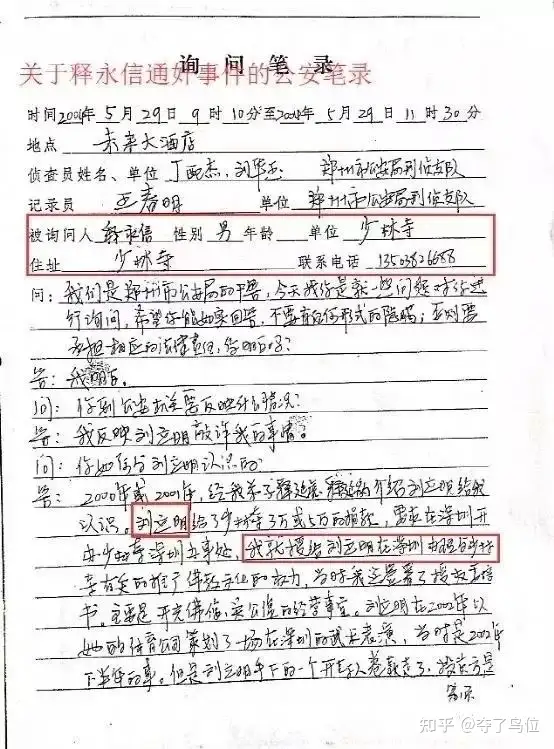 询问笔录
关于释永信通奸事件的公安笔录
时间2004年5月29日9时10分至2004年5月29日11时30分
地点 未来大酒店
侦查员姓名、单位 郑州市公安局刑侦支队
记录员 王春明 单位 郑州市公安局刑侦支队
被询问人 释永信 性别 男 年龄 单位 少林寺
住址 少林寺 联系电话
问：我们是郑州市公安局的干警，今天我们是就一些问题对你进
行询问，希望你能如实回答，不要有任何形式的隐瞒；否则要
承担相应的法律责任，你明白吗？
答：我明白。
问：你到公安机关要反映什么情况？
答：我反映刘立明敲诈我的事情。
问：你如何与刘立明认识的
答：2000年或2001年，经我弟子释延 介绍刘立明给我
认识。刘立明给了少林寺3万或5万的捐款，要求在深圳开
办少林寺深圳办事处，我就授给刘立明在深圳 少林
寺有关的推广佛教文化的权力，当时我还签署了授权委托
书。主要是开光佛像，卖公道的经营事宜。刘立明在2002年以
她的体育公司策划了一场在深圳的武术表演，当时是2002年
下半年的事。但是刘立明手下的一个 人卷款走了，
知乎 @夺了鸟位